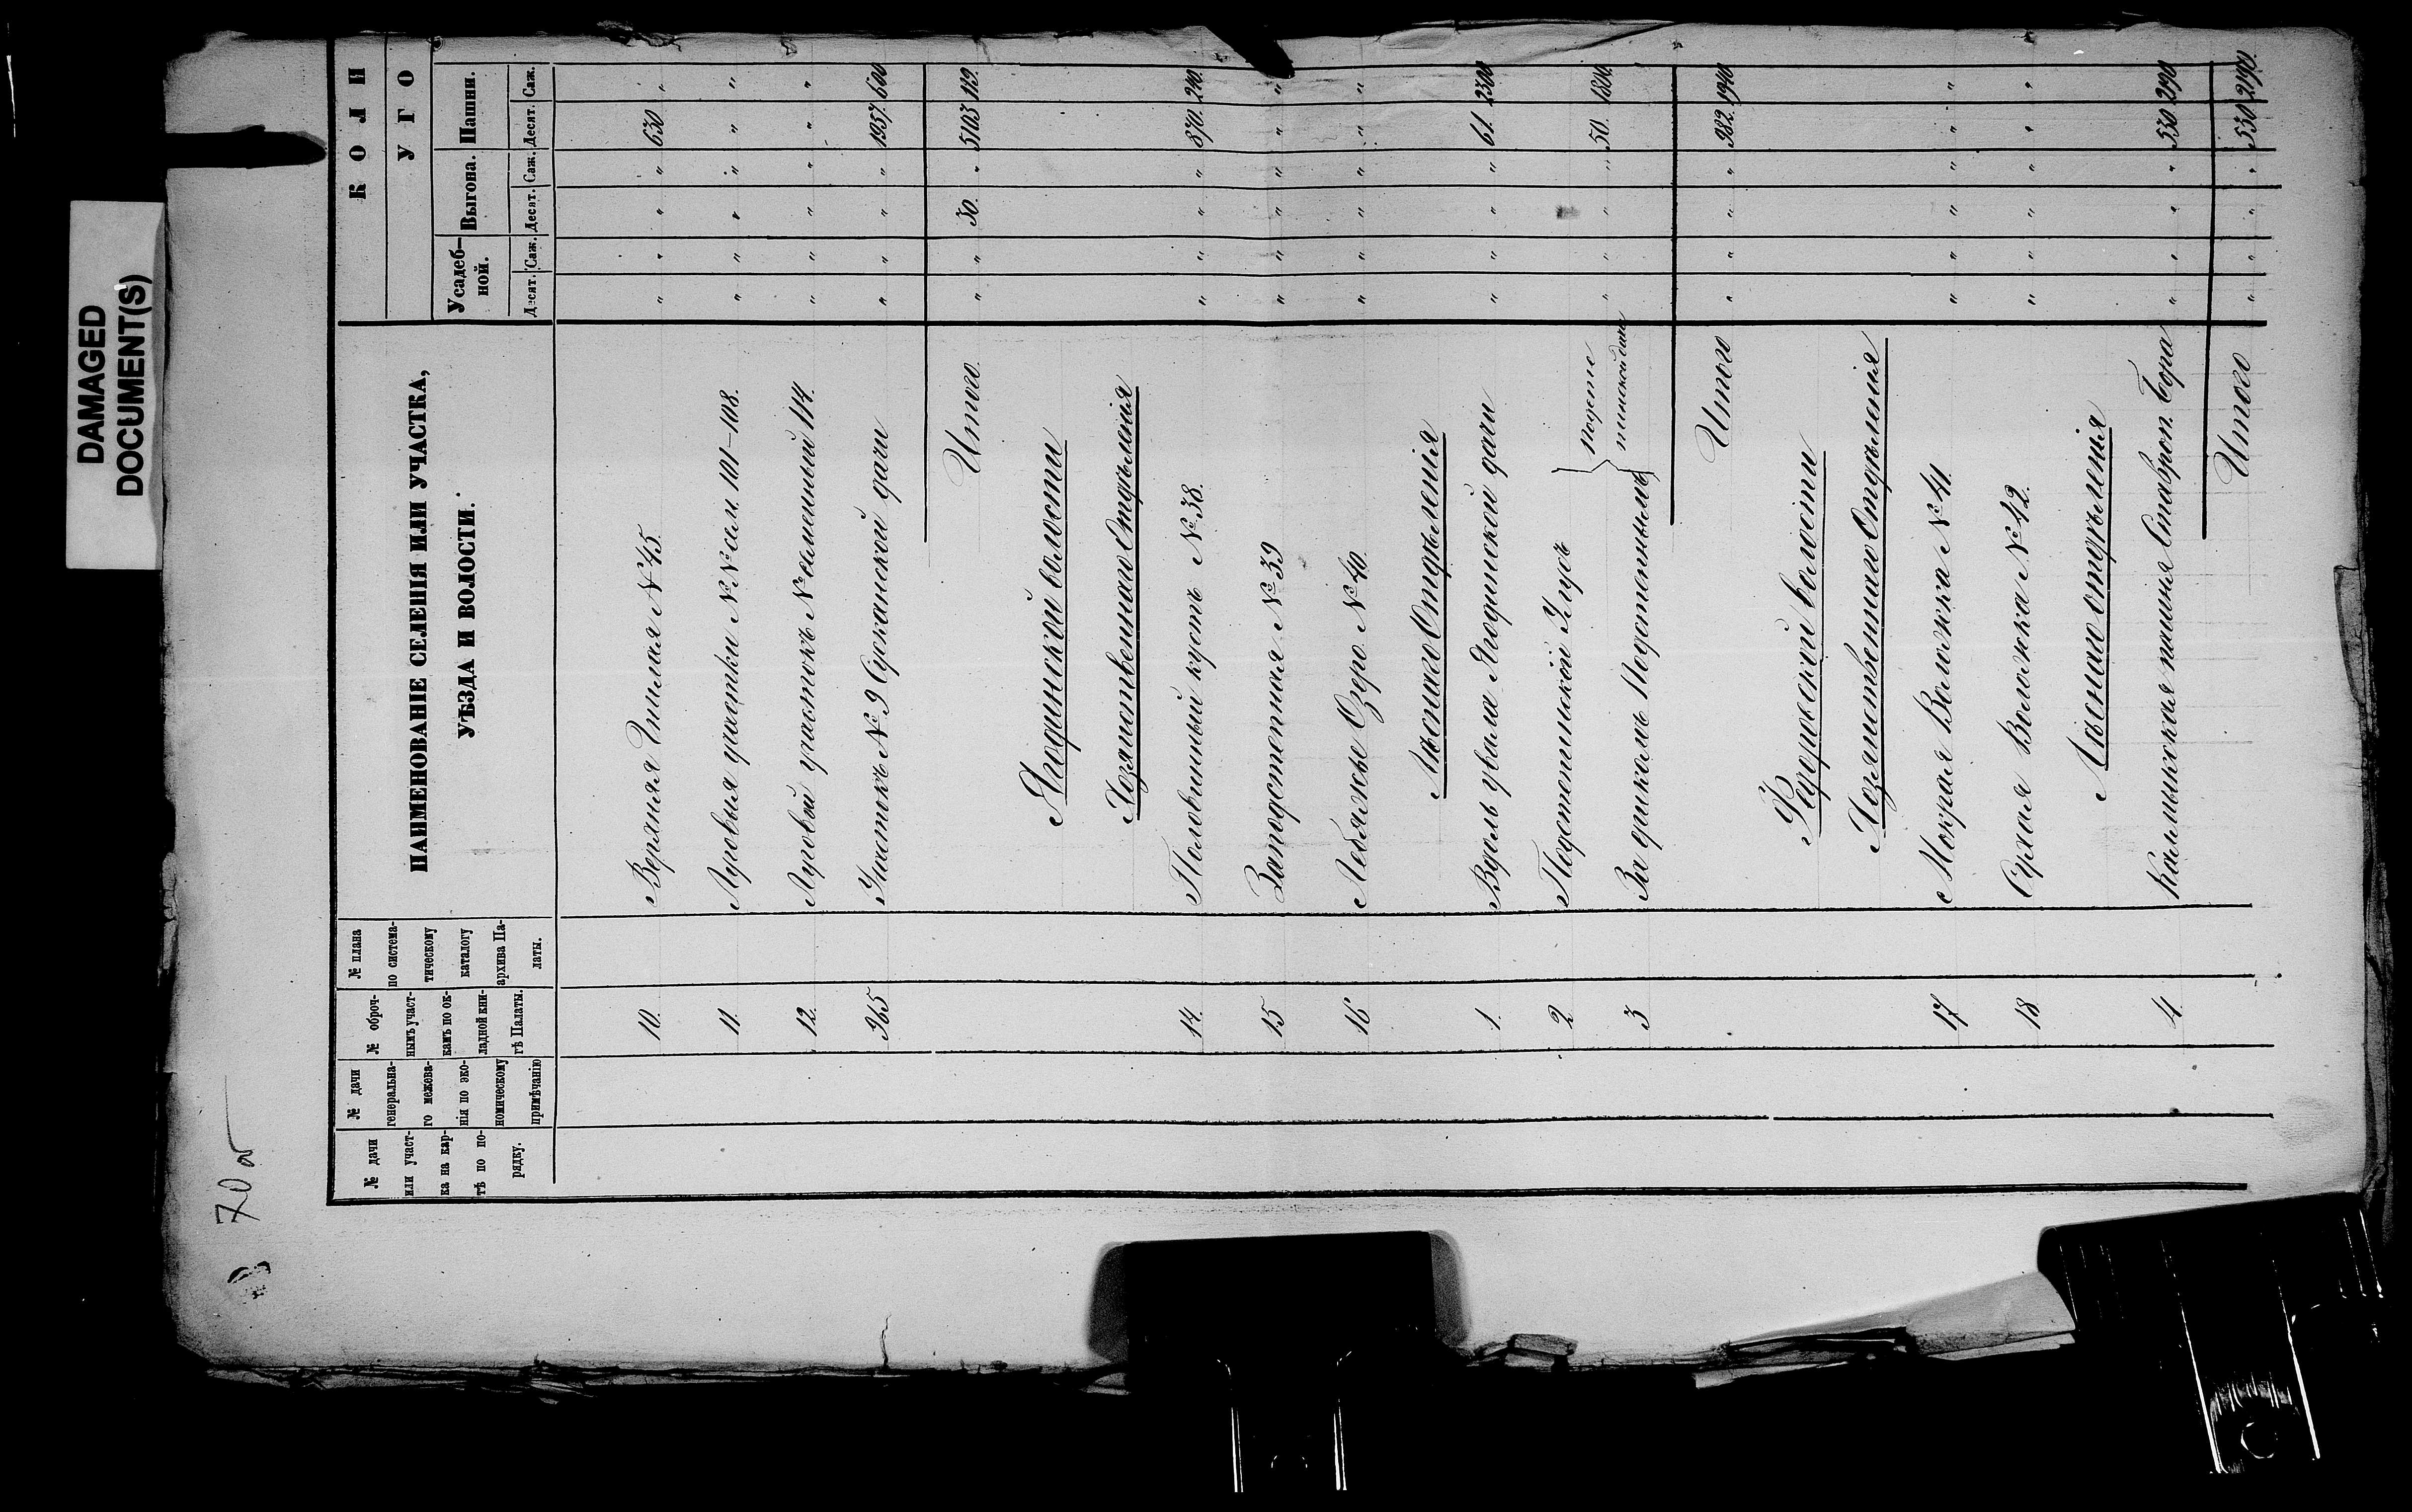 DAMAGED
DOCUMENT(S)
70 об
№ дачи
или участ-
ка на кар-
тѣ по по-
рядку.
№ дачи
генеральна-
го межева-
нія по эко-
номическому
примѣчанію
№ оброч-
нымъ участ-
камъ по ок-
ладной кни-
гѣ Палаты.
№ плана
по система-
тическому
каталогу
архива Па-
латы.
НАИМЕНОВАНІЕ СЕЛЕНІЯ ИЛИ УЧАСТКА,
УѢЗДА И ВОЛОСТИ.
КОЛИ
УГО
Усадеб-
ной. Выгона. Пашни.
Десят. Саж. Десят. Саж. Десят. Саж.
10. Верхняя Гнилая № 45. " " " " 630 "
11. Луговыя участки №№ 101-108. " " " " " "
12. Луговой участокъ № 114. " " " " " "
365 Участокъ № 9 Сусканской дачи " " " " 1937. 600
Итого " " 30. " 5103 1129.
Ягодинской волости
Хозяйственнаго Отдѣленія
14. Половинный кустъ № 38. " " " " 870. 240.
15 Заподстепная № 39 " " " " " "
16 Лебяжье Озеро № 40. " " " " " "
Лѣснаго Отдѣленія
1. Вдоль увала Ягодинской дачи " " " " 61. 2300
2 Подстепинской
3 За } Подсте
пинской дачи " " " " 50. 1800.
Итого " " " " 982. 1940
Федоровской волости
Хозяйственнаго Отдѣленія
17 Мокрая Воложка № 41. " " " " " "
18 Сухая Воложка № 42. " " " " " "
Лѣснаго отдѣленія
4. Калмыцкая пашня Ставроп. бора " " " " 530 2190
Итого " " " " 530 2190.